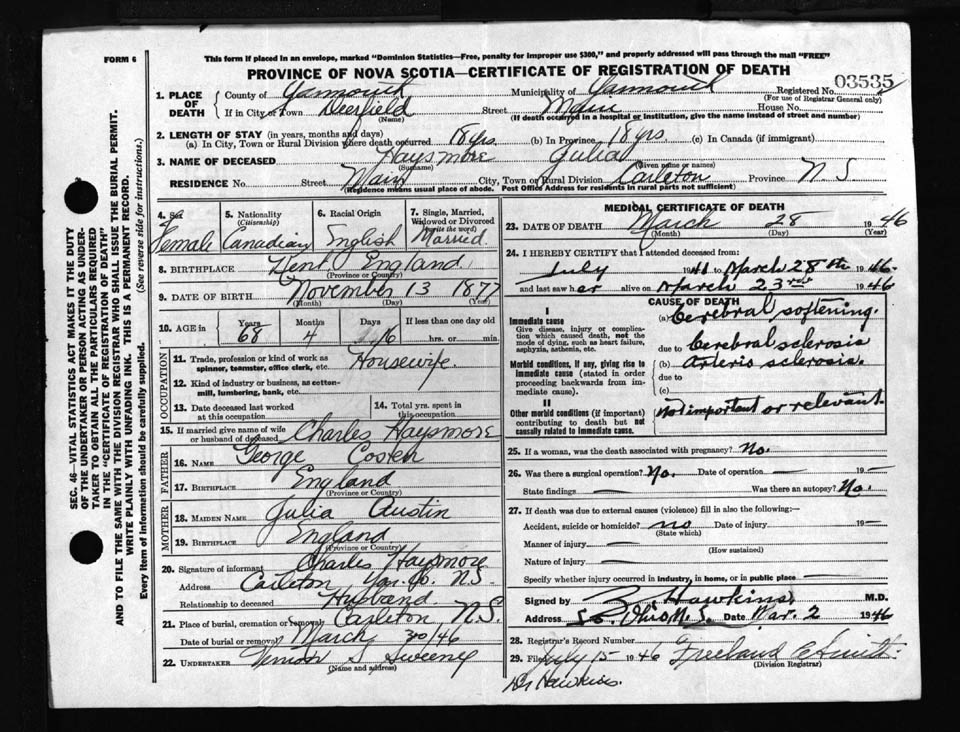 FORM 6
This form if placed in an envelope, marked "Dominion Statistics—Free, penalty for improper use $300," and properly addressed will pass through the mail "FREE"
PROVINCE OF NOVA SCOTIA—CERTIFICATE OF REGISTRATION OF DEATH
03535
1. PLACE OF DEATH County of Yarmouth Municipality of Yarmouth Registered No.
(For use of Registrar General only)
If in City or Town Deerfield Street Main House No.
(Name) (If death occurred in a hospital or institution, give the name instead of street and number)
2. LENGTH OF STAY (in years, months and days)
(a) In City, Town or Rural Division where death occurred 18 yrs. (b) In Province 18 yrs. (c) In Canada (if immigrant)
3. NAME OF DECEASED Haysmore Julia
(Surname) (Given name or names)
RESIDENCE No. Street Main City, Town or Rural Division Carleton Province N S
(Residence means usual place of abode. Post Office Address for residents in rural parts not sufficient)
4. Sex Female
5. Nationality (Citizenship) Canadian
6. Racial Origin English
7. Single, Married, Widowed or Divorced (write the word) Married
8. BIRTHPLACE Kent England
(Province or Country)
9. DATE OF BIRTH November 13 1877
(Month) (Day) (Year)
10. AGE in Years Months Days If less than one day
68 4 16 hrs. or min.
OCCUPATION
11. Trade, profession or kind of work as spinner, teamster, office clerk, etc. Housewife.
12. Kind of industry or business, as cotton-mill, lumbering, bank, etc.
13. Date deceased last worked at this occupation
14. Total yrs. spent in this occupation
15. If married give name of wife or husband of deceased Charles Haysmore
FATHER
16. NAME George
17. BIRTHPLACE England
(Province or Country)
MOTHER
18. MAIDEN NAME Julia Austin
19. BIRTHPLACE England
(Province or Country)
20. Signature of informant Charles Haysmore
Address Carleton Yar. Co. N.S.
Relationship to deceased Husband
21. Place of burial, cremation or removal Carleton N.S.
Date of burial or removal March 30/46
22. UNDERTAKER S Sweeney
(Name and address)
MEDICAL CERTIFICATE OF DEATH
23. DATE OF DEATH March 28 1946
(Month) (Day) (Year)
24. I HEREBY CERTIFY that I attended deceased from:
July 1941 to March 28th 1946
and last saw her alive on March 23rd 1946
CAUSE OF DEATH
I
Immediate cause (a) Cerebral softening.
Give disease, injury or complication which caused death, not the mode of dying, such as heart failure, asphyxia, asthenia, etc.
due to Cerebral sclerosis
Morbid conditions, if any, giving rise to immediate cause (stated in order proceeding backwards from immediate cause).
(b) Arterio sclerosis.
due to
(c)
II
Other morbid conditions (if important) contributing to death but not causally related to immediate cause.
Not important or relevant
25. If a woman, was the death associated with pregnancy? No.
26. Was there a surgical operation? No. Date of operation — 19—
State findings — Was there an autopsy? No.
27. If death was due to external causes (violence) fill in also the following:—
Accident, suicide or homicide? no Date of injury 19—
(State which)
Manner of injury —
(How sustained)
Nature of injury —
Specify whether injury occurred in industry, in home, or in public place —
Signed by Hawkins M.D.
Address So. Ohio N.S. Date Mar. 2 1946
28. Registrar's Record Number
29. Filed July 15 1946 Freeland
(Division Registrar)
Dr Hawkins.
SEC. 46—VITAL STATISTICS ACT MAKES IT THE DUTY
OF THE UNDERTAKER OR PERSON ACTING AS UNDER-
TAKER TO OBTAIN ALL THE PARTICULARS REQUIRED
IN THE "CERTIFICATE OF REGISTRATION OF DEATH"
AND TO FILE THE SAME WITH THE DIVISION REGISTRAR WHO SHALL ISSUE THE BURIAL PERMIT.
WRITE PLAINLY WITH UNFADING INK. THIS IS A PERMANENT RECORD.
Every item of information should be carefully supplied. (See reverse side for instructions.)